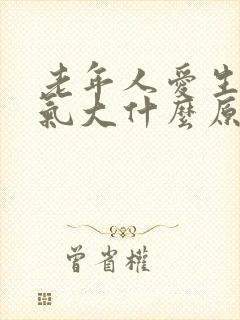 老年人愛生
氣大什麼原
曾省權